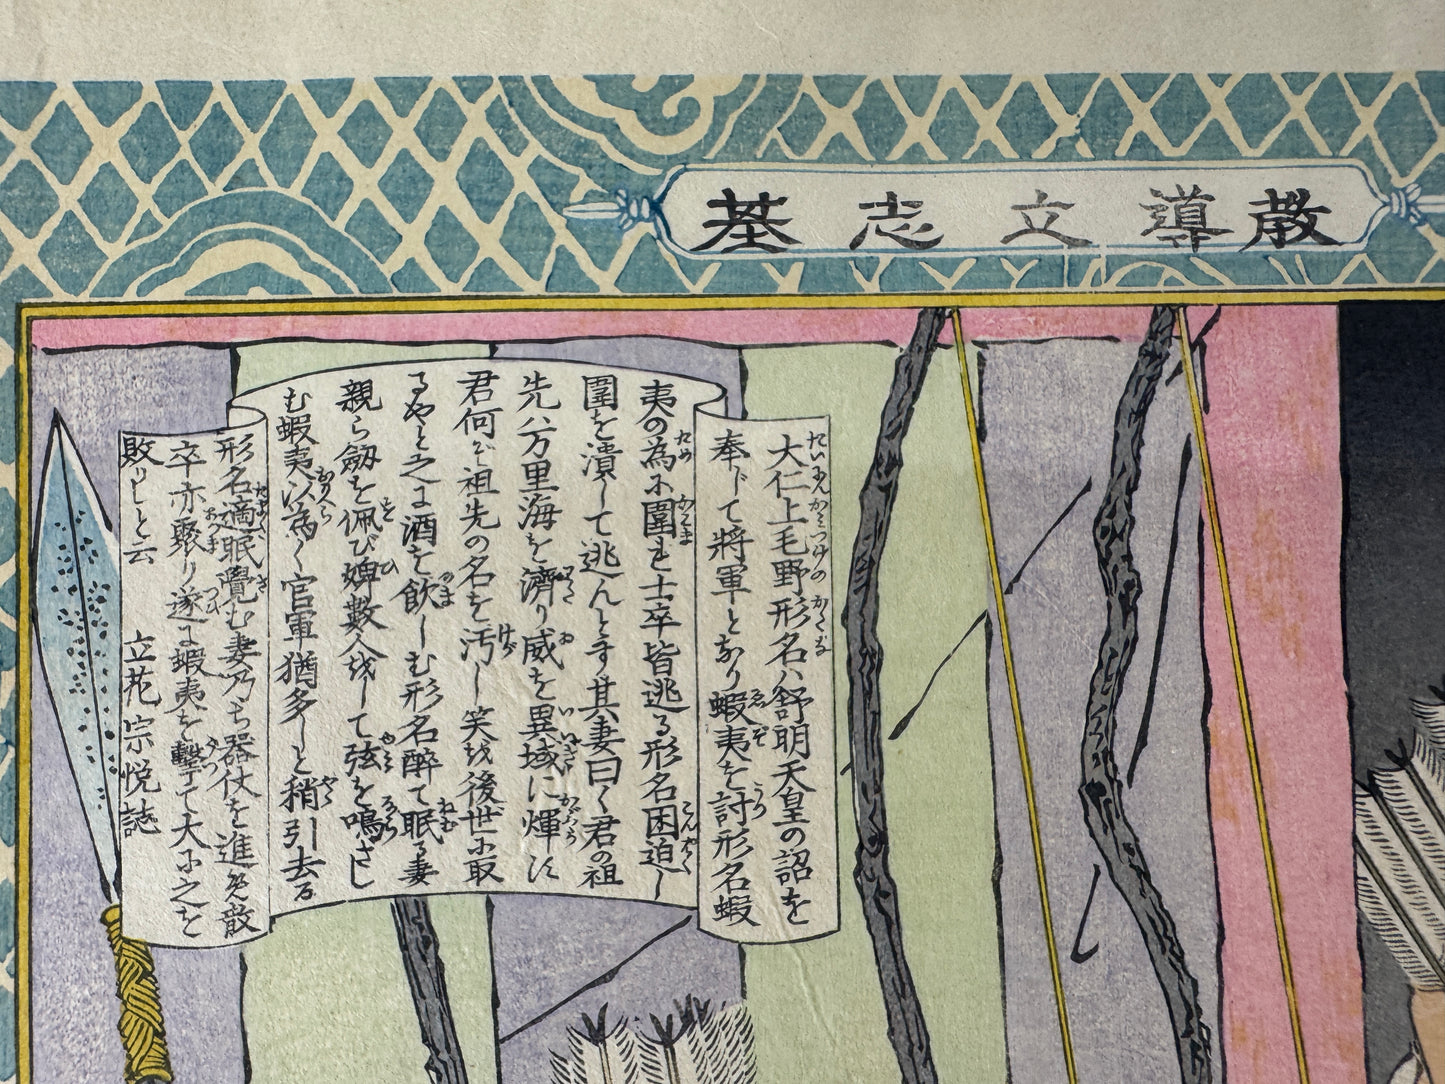 教導立志基
大仁上毛野形名ハ舒明天皇の詔を
奉じて將軍となり蝦夷を討形名蝦
夷の為に圍れ士卒皆逃る形名困迫し
圍を潰して逃んとす其妻曰く君の祖
先ハ万里海を濟り威を異域に輝す
君何ぞ祖先の名を汚し笑を後世に取
るやと之に酒を飲しむ形名醉て眠る妻
親ら劔を佩び婢數人をして弦を鳴さし
む蝦夷以為く官軍猶多しと稍引去る
形名適眠覺む妻乃ち器仗を進め散
卒亦聚り遂に蝦夷を擊て大に之を
敗りしと云　立花宗悦誌